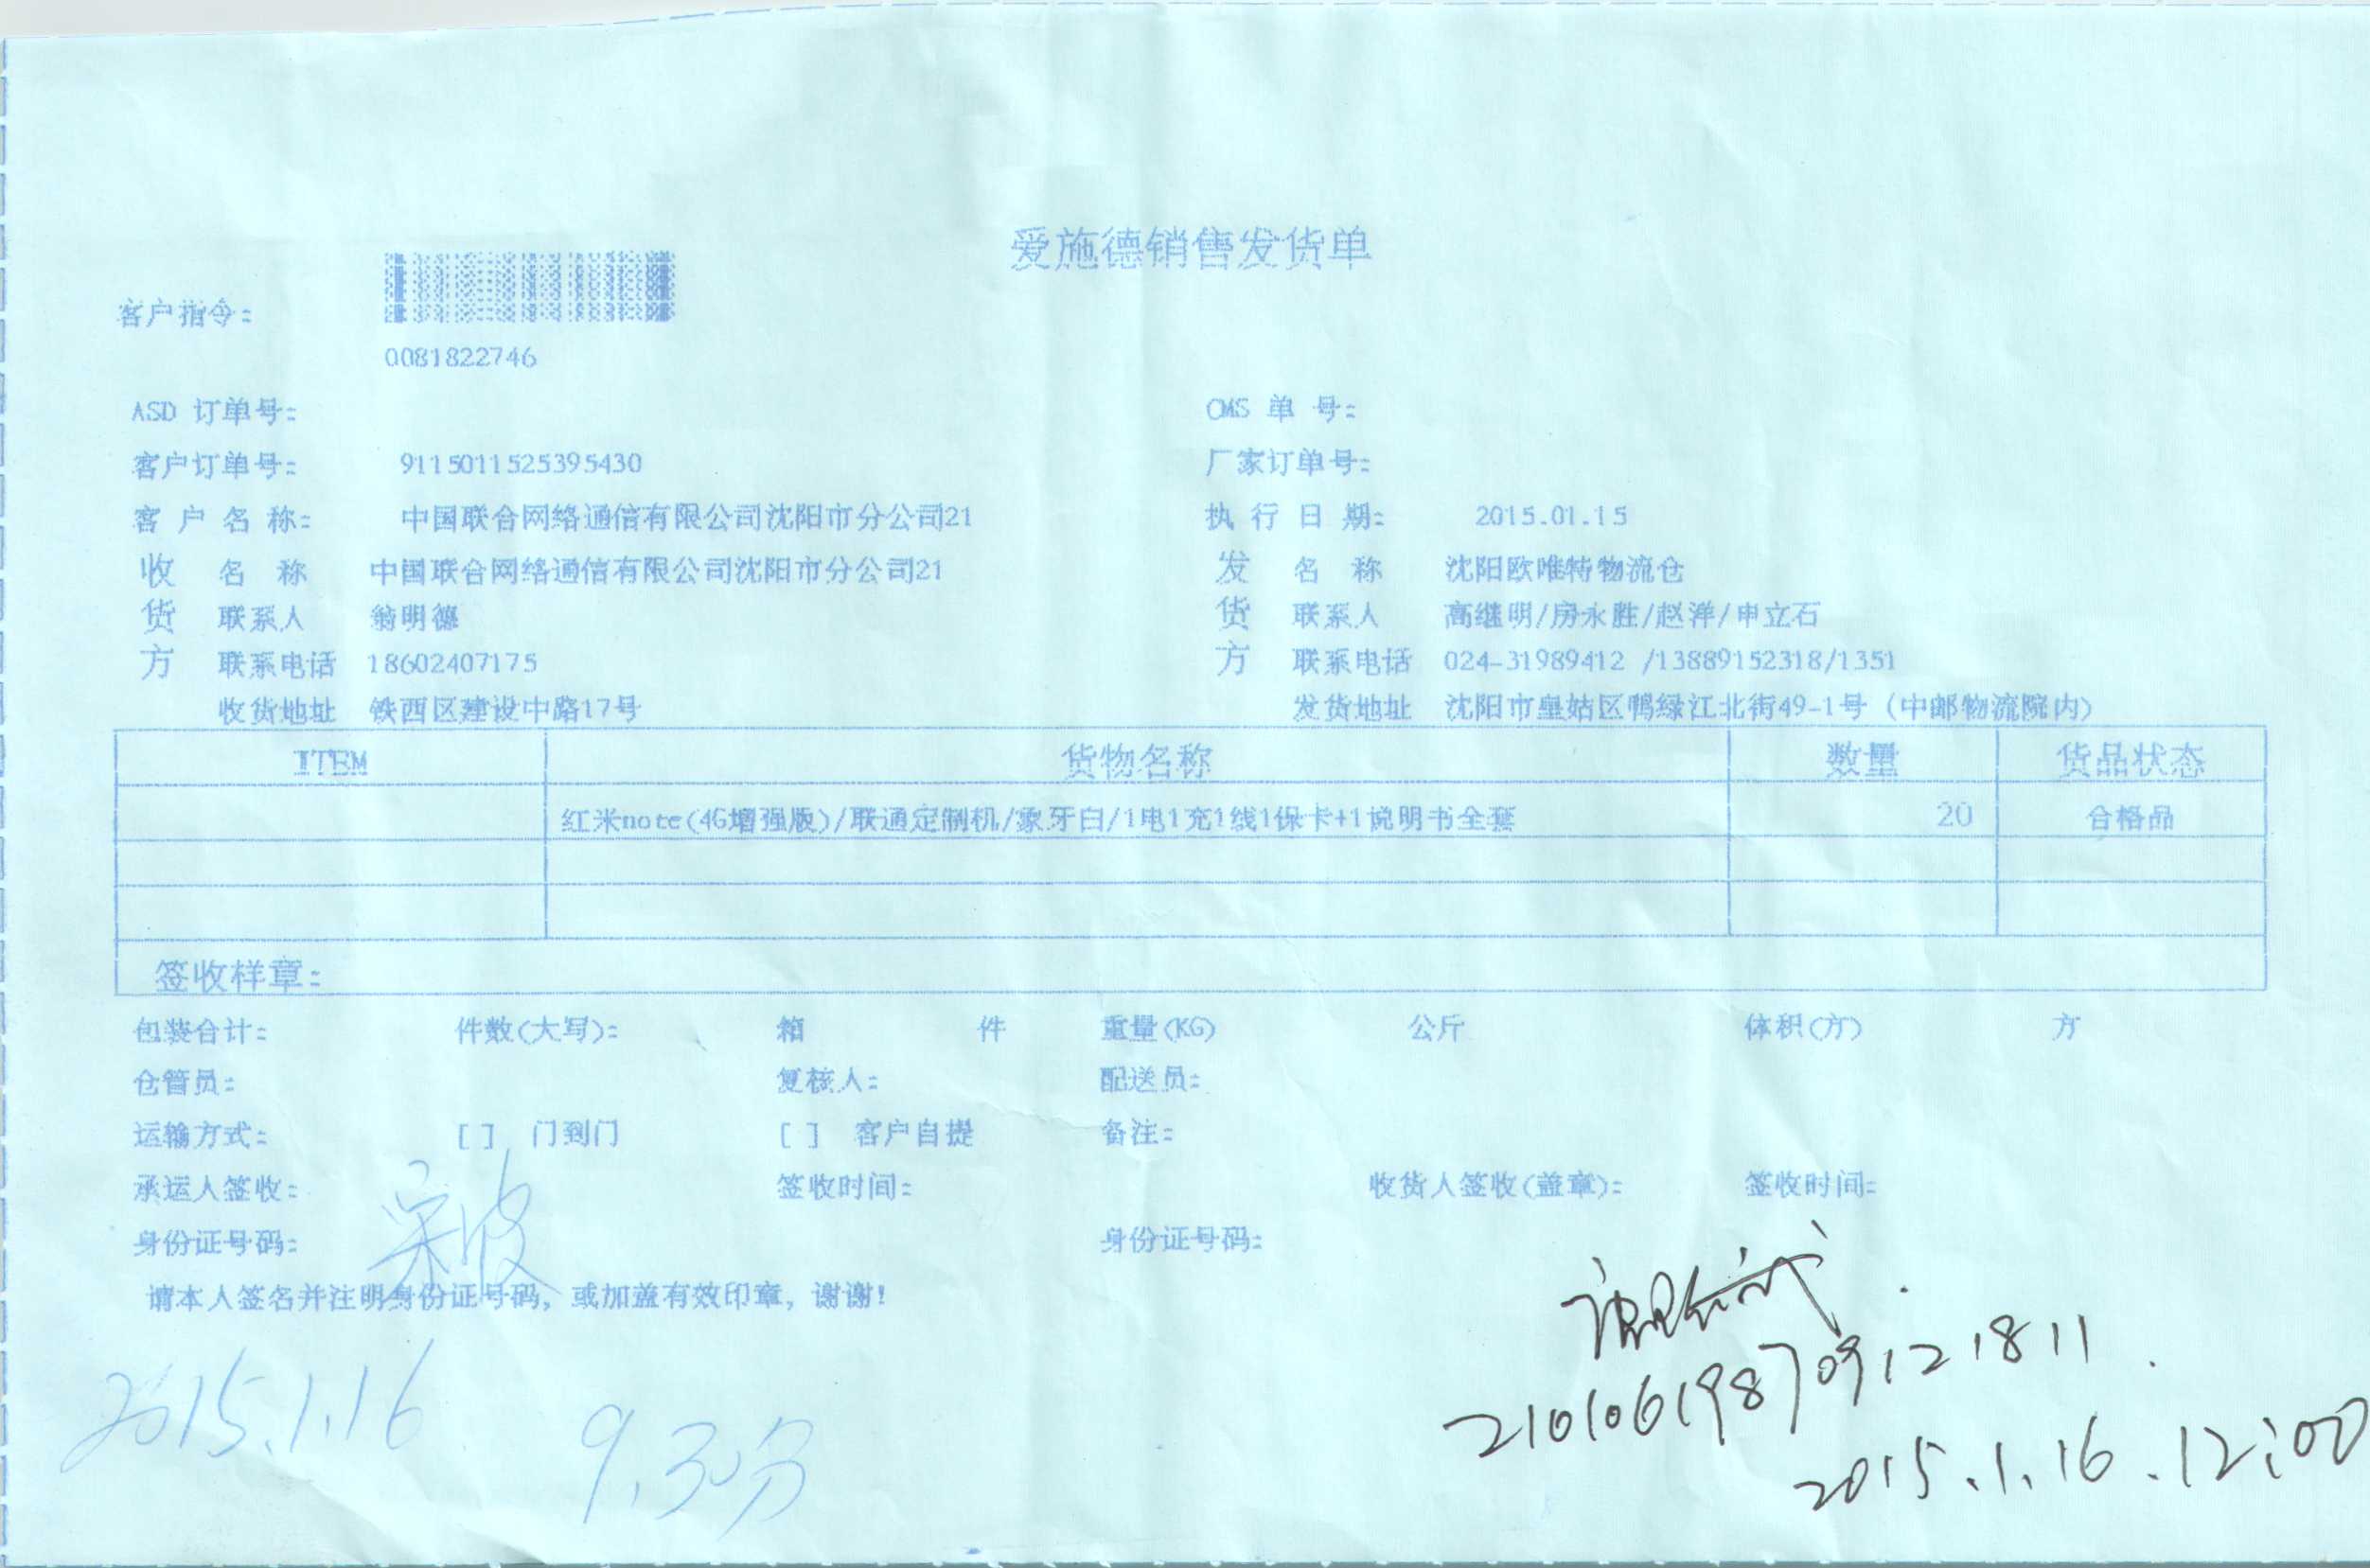 爱施德销售发货单
客户指令:
0081822746
ASD 订单号: CMS 单 号:
客户订单号: 9115011525395430 厂家订单号:
客 户 名 称: 中国联合网络通信有限公司沈阳市分公司21 执 行 日 期: 2015.01.15
收 名 称 中国联合网络通信有限公司沈阳市分公司21 发 名 称 沈阳欧唯特物流仓
货 联系人 翁明德 货 联系人 高继明/房永胜/赵洋/申立石
方 联系电话 18602407175 方 联系电话 024-31989412 /13889152318/1351
收货地址 铁西区建设中路17号 发货地址 沈阳市皇姑区鸭绿江北街49-1号 (中邮物流院内)
ITEM 货物名称 数量 货品状态
红米note(4G增强版)/联通定制机/象牙白/1电1充1线1保卡+1说明书全套 20 合格品
签收样章:
包装合计: 件数(大写): 箱 件 重量(KG) 公斤 体积(方) 方
仓管员: 复核人: 配送员:
运输方式: [ ] 门到门 [ ] 客户自提 备注:
承运人签收: 签收时间: 收货人签收(盖章): 签收时间:
身份证号码: 身份证号码:
请本人签名并注明身份证号码, 或加盖有效印章, 谢谢!
210106198709121811
2015.1.16 9.30分
2015.1.16.12:00